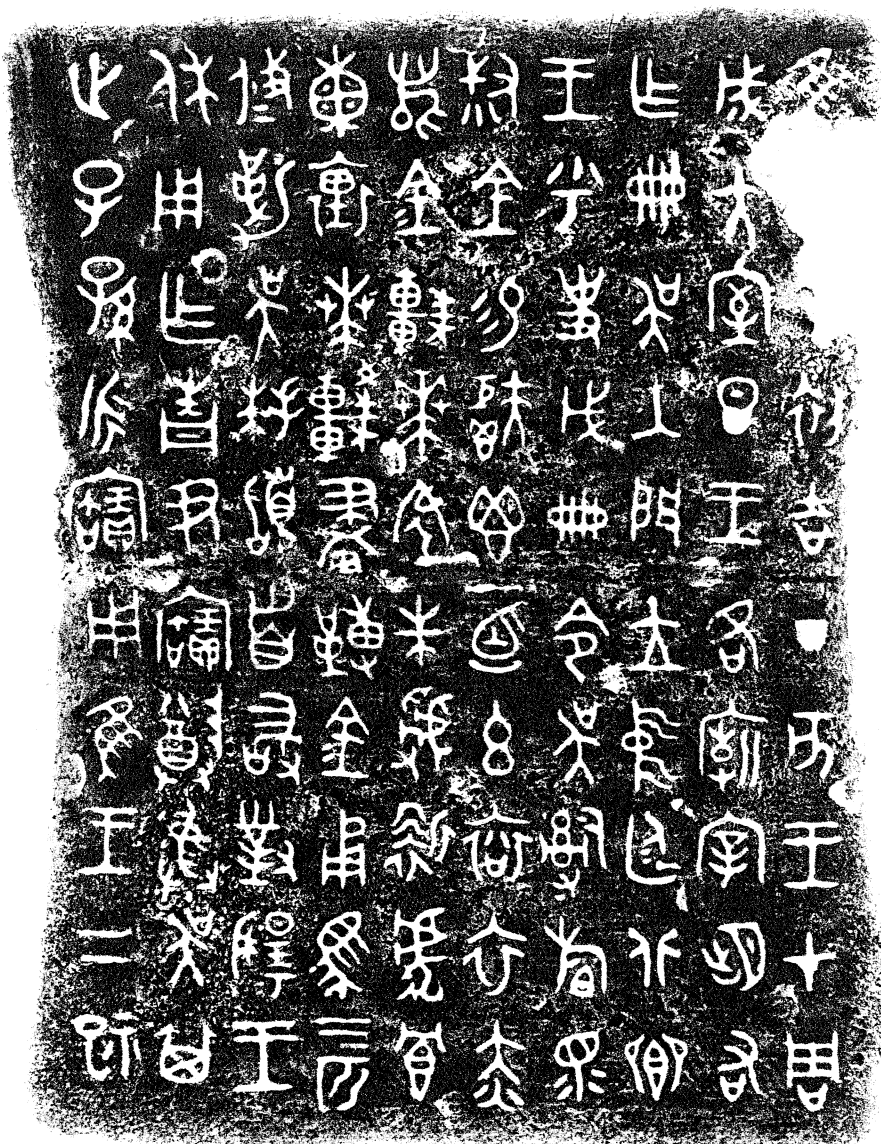 隹初吉丁亥王才周
成大室旦王各廟宰朏右
乍冊吳入門立中廷北鄉
王乎史戊冊令吳𤔲眔
叔金易秬鬯一卣玄袞衣赤
舄金車𠦪朱虢靳虎冟
熏裏𠦪較畫轉金甬馬四匹
攸勒吳拜𩒨首敢對揚王
休用乍青尹寶尊彝吳其
世子孫永寶用隹王二祀